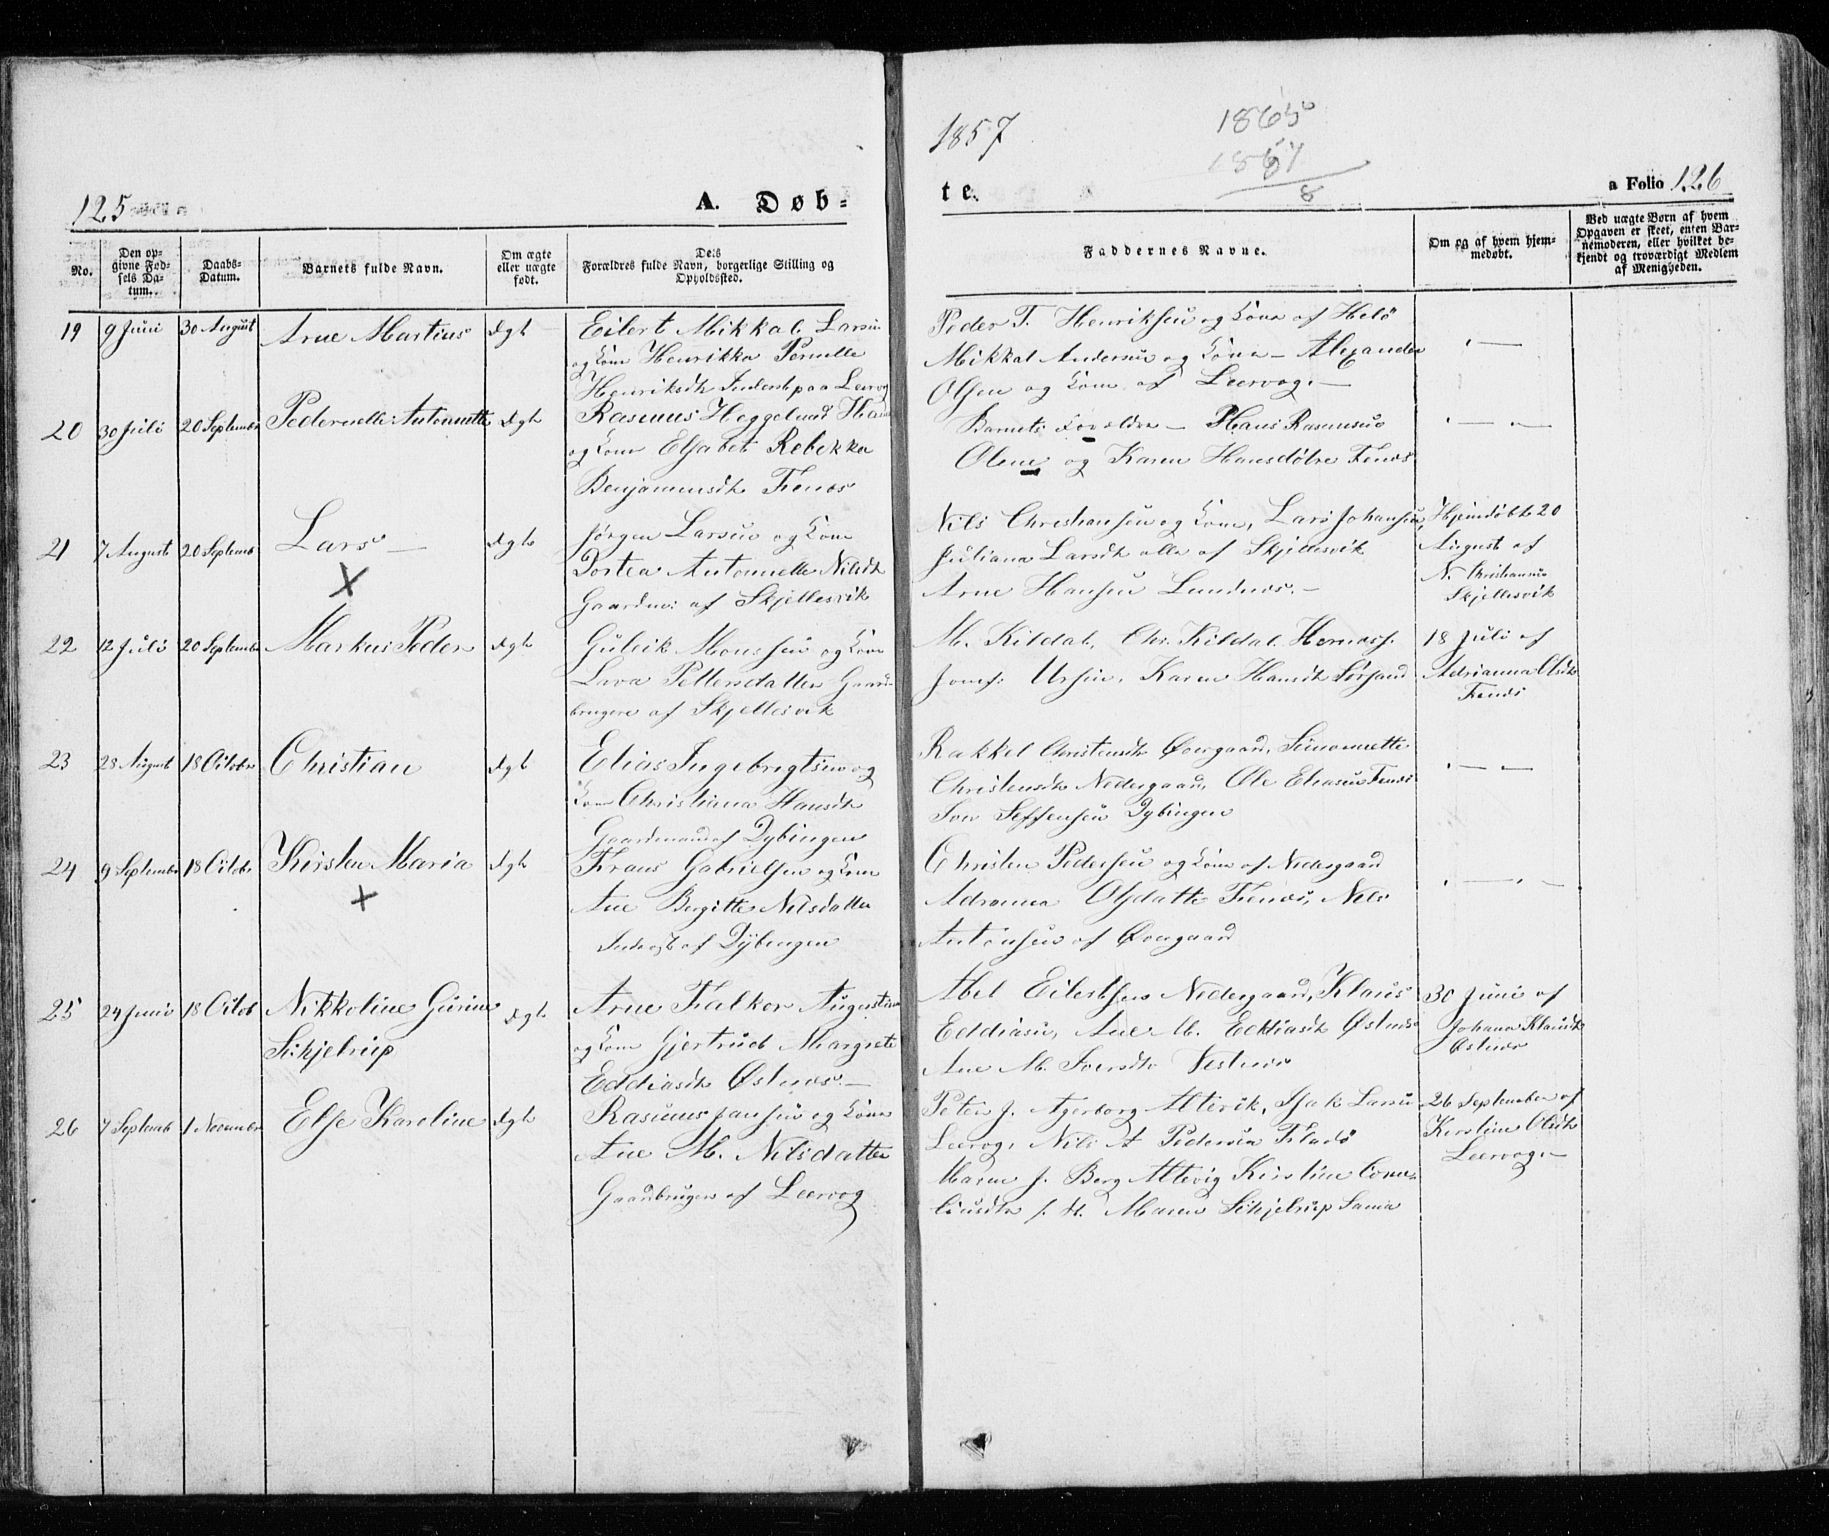 1857
1865
1857
8
125
A. Døb-
te.
a Folio 126
No.
Den op-
givne Fød-
sels Da-
tum.
Daabs-
Datum.
Barnets fulde Navn.
Om ægte
eller uægte
født.
De:s
Forældres fulde Navn, borgerlige Stilling og
Opholdssted.
Faddernes Navne.
Om og af hvem hjem-
medøbt.
Ved uægte Born af hvem
Opgaven er skeet, enten Bar-
nemoderen, eller hvilket be-
kjendt og troværdigt Medlem
af Menigheden.
19 9 Juni 30 August Arne Martius Ægt
Eilert Mikkal Larsen
og Kone Henrikka Pernelle
Henriksdtr Inderst paa Leervog
Peder T. Henriksen og Kone af Helø
Mikkal Andersen og Kone – Alexander
Olsen og Kone af Leervog. –
20 30 Juli 20 September Pedernelle Antonette Ægte
Rasmus Heggelund
og Kone Elsabet Rebekka
Benjaminsdtr Fenes
Barnets Forældre – Hans Rasmusen
Olena og Karen Hansdøtre Fenes
21 7 August 20 Septemb Lars – Ægte
Jørgen Larsen og Kone
Dortea Antonnette Nilsdtr
Gaardm: af Skjellesvik
Nils Christiansen og Kone, Lars Johansen,
Juliana Larsdtr alle af Skjellesvik
Arne Hansen Lundnes. –
Hjemdøbt 20
August af
N. Christiansen
Skjellesvik
22 12 Juli 20 September Markus Peder Ægte
Gulvik Monssen og Kone
Lava Pettersdatter Gaard-
brugere af Skjellesvik
M. Kildal, Chr. Kildal Hemnes.
Jomf: Ursin, Karen Hansdtr Sørsand
18 Juli af
Adrianna Olsdtr
Fenes
23 28 August 18 Octobr Christian Ægt
Elias Ingebrigtsen og
Kone Christiana Hansdtr
Gaardmand af Dybingen
Rakkel Christensdtr Øvergaard, Simonnette
Christensdtr Nedergaard, Ole Eliasen Fenes
Steffensen Dybingen
24 9 September 18 Octobr Kirsten Maria Ægt
Frans Gabrielsen og Kone
Ane Birgitte Nilsdatter
Inderst af Dybingen
Christen Pedersen og Kone af Nedergaard
Adriana Olsdatter Fenes, Nils
Antonsen af Øvergaard
25 24 Juni 18 Octob Nikkoline Gurine
Schjelrup
Ægt
Arne Falkor Augustin
og Kone Gjertrud Margrete
Eddiasdtr Østnes –
Abel Eilertsen Nedergaard, Klaus
Eddiasn, Ane M. Eddiasdtr Østnes
Ane M. Iversdtr Vestnes
30 Juni af
Johana Klausdtr
Østnes
26 7 Septemb 1 November Else Karoline Ægte
Rasmus Jansen og Kone
Ane M. Nilsdatter
Gaardbruger af Leervog
Peter J. Agerborg Altevik, Isak Larsen
Leervog, Nils A Pedersen Fladø
Maren J. Berg Altevig Kirstine Corne-
liusdtr f. H. Maren Schjelrup Sama
26 September af
Kirstine Olsdtr
Leervog. –